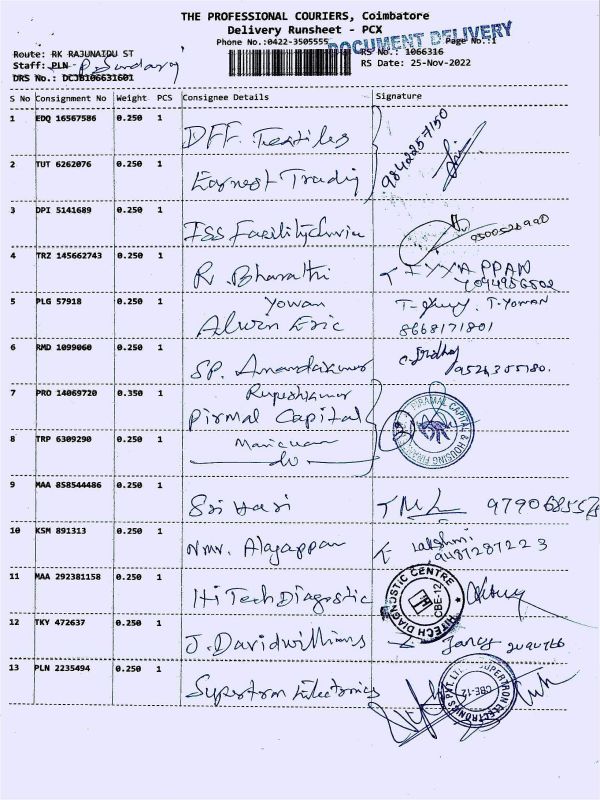 THE PROFESSIONAL COURIERS, Coimbatore
Delivery Runsheet - PCX
Phone No.:0422-3505555 Page No.:1
DOCUMENT DELIVERY
Route: RK RAJUNAIDU ST RS No.: 1066316
Staff: PLN - RS Date: 25-Nov-2022
DRS No.: DCJB106631601
S No Consignment No Weight PCS Consignee Details Signature
1 EDQ 16567586 0.250 1 DFF. Textiles 9842257150
2 TUT 6262076 0.250 1 Earnest Trading
3 DPI 5141689 0.250 1 ISS Facility
4 TRZ 145662743 0.250 1 R. Bharathi T IYYAPPAN
Yowan
5 PLG 57918 0.250 1 Alwin Eric T. YOWAN
8668171801
6 RMD 1099060 0.250 1 SP. Anandakumar
Rupeshkumar
7 PRO 14069720 0.350 1 Pirmal Capital PIRAMAL CAPITAL & HOUSING FINANCE
8 TRP 6309290 0.250 1 do
9 MAA 858544486 0.250 1 Sri Hari
10 KSM 891313 0.250 1 Nmr. Alagappan Lakshmi
9487287223
11 MAA 292381158 0.250 1 Hi Tech Diagnostic HITECH DIAGNOSTIC CENTRE CBE-12
12 TKY 472637 0.250 1 J. Davidwilliams Jancy
13 PLN 2235494 0.250 1 Supertron Electronics SUPERTRON ELECTRONICS PVT. LTD. CBE-12